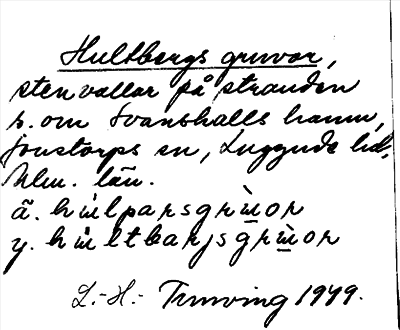 Hultbergs gruvor,
stenvallar på stranden
s. om Svanshalls hamn,
Jonstorps sn, Luggude hd,
Mlm. län.
ä. hu̇lparsgrùor
y. hu̇ltbarjsgrùor
L.-H.- Trurving 1949.